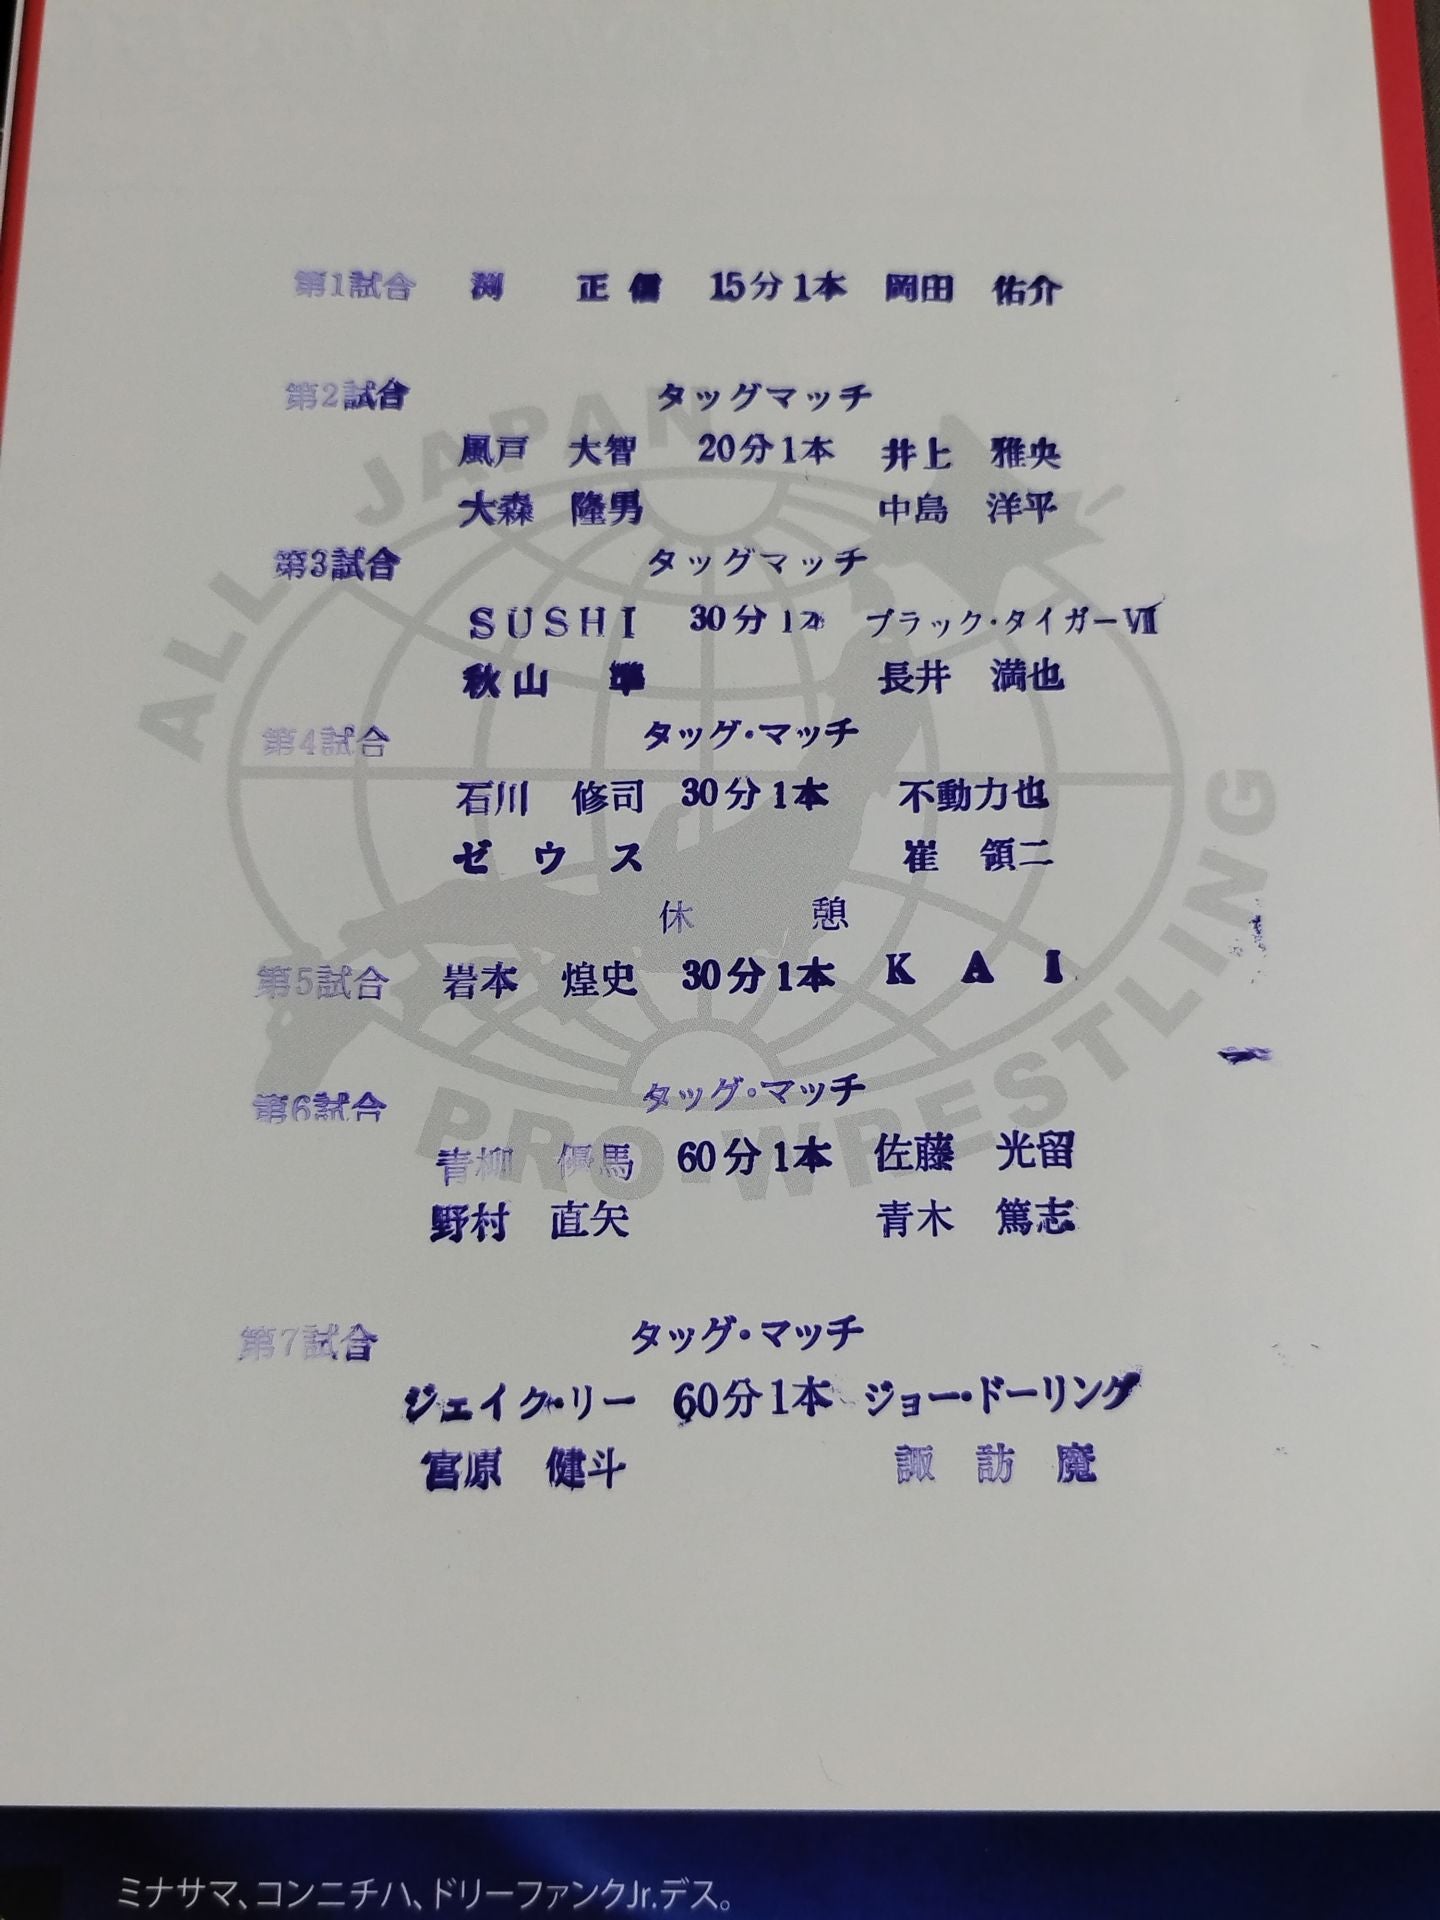 第1試合 渕 正信 15分1本 岡田 佑介
第2試合 タッグマッチ
風戸 大智 20分1本 井上 雅央
大森 隆男 中島 洋平
第3試合 タッグマッチ
SUSHI 30分1本 ブラック・タイガーⅦ
秋山 準 長井 満也
第4試合 タッグ・マッチ
石川 修司 30分1本 不動力也
ゼウス 崔 領二
休憩
第5試合 岩本 煌史 30分1本 KAI
第6試合 タッグ・マッチ
青柳 優馬 60分1本 佐藤 光留
野村 直矢 青木 篤志
第7試合 タッグ・マッチ
ジェイク・リー 60分1本 ジョー・ドーリング
宮原 健斗 諏訪魔
ALL JAPAN
PRO-WRESTLING
ミナサマ、コンニチハ、ドリーファンクJr.デス。